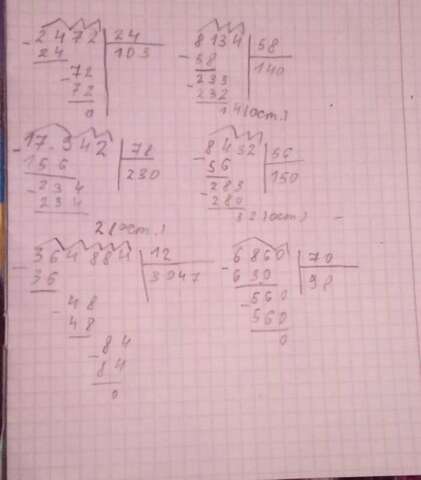 2472 | 24
- 24 | 103
- 72
72
0
8134 | 58
- 58 | 140
- 233
- 232
14(ост.)
- 17.942 | 78
156 | 230
- 234
234
2(ост.)
8432 | 56
- 56 | 150
- 283
- 280
32(ост)
364884 | 12
- 36 | 3047
- 48
48
- 84
84
0
6860 | 70
- 630 | 98
- 560
560
0